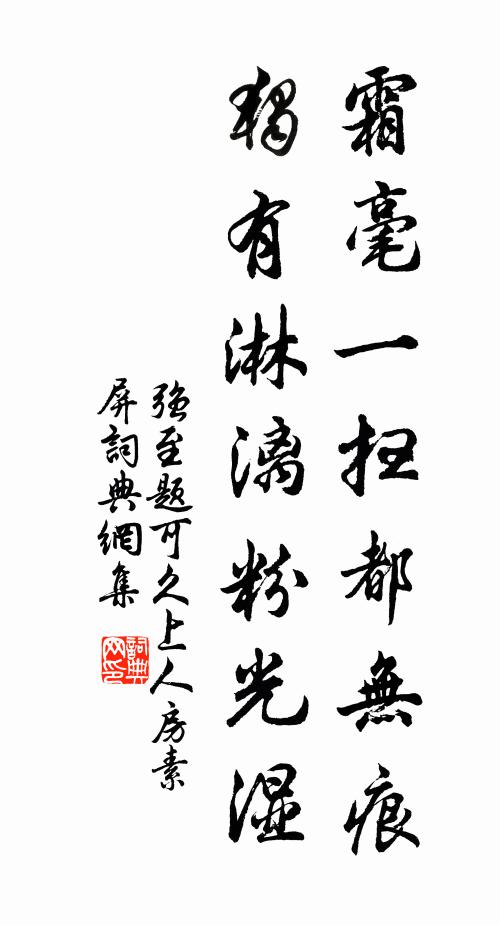 霜毫一扫都無痕
獨有淋漓粉光濕
強至题可久上人房素
屏詞典網集
詞典网印